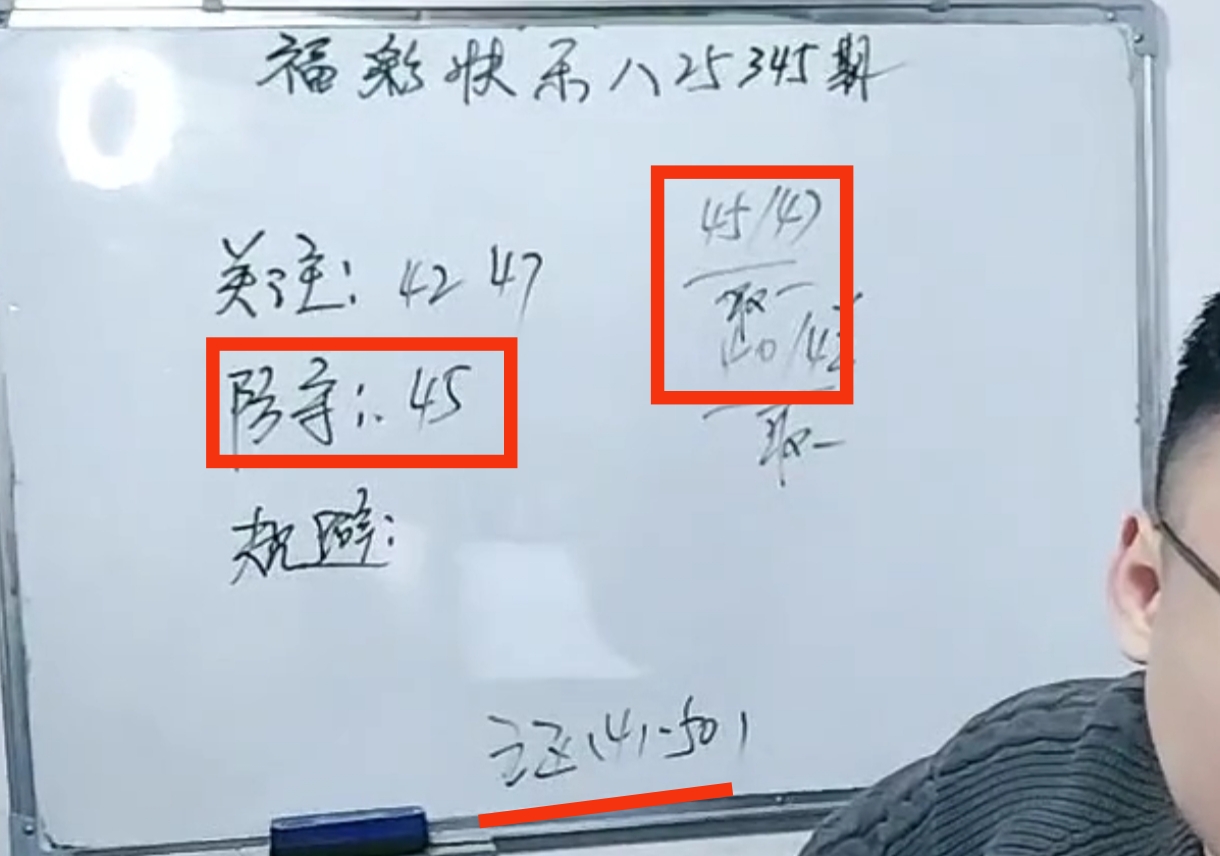 福彩快乐八25345期
关注: 42 47
45/47
取一
40/42
取一
防守: 45
规避:
主区(41-50)